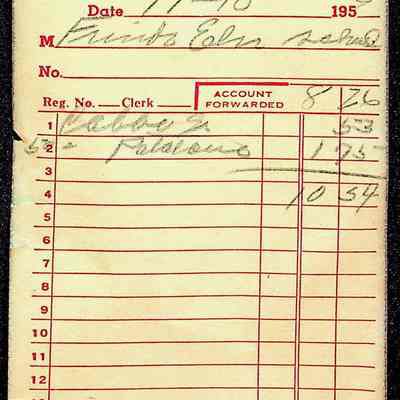 Date 195
M
No.
Reg. No. Clerk ACCOUNT FORWARDED 8 26
1 Cabbage 53
2 Potatoes 1 75
3
4 10 54
5
6
7
8
9
10
11
12